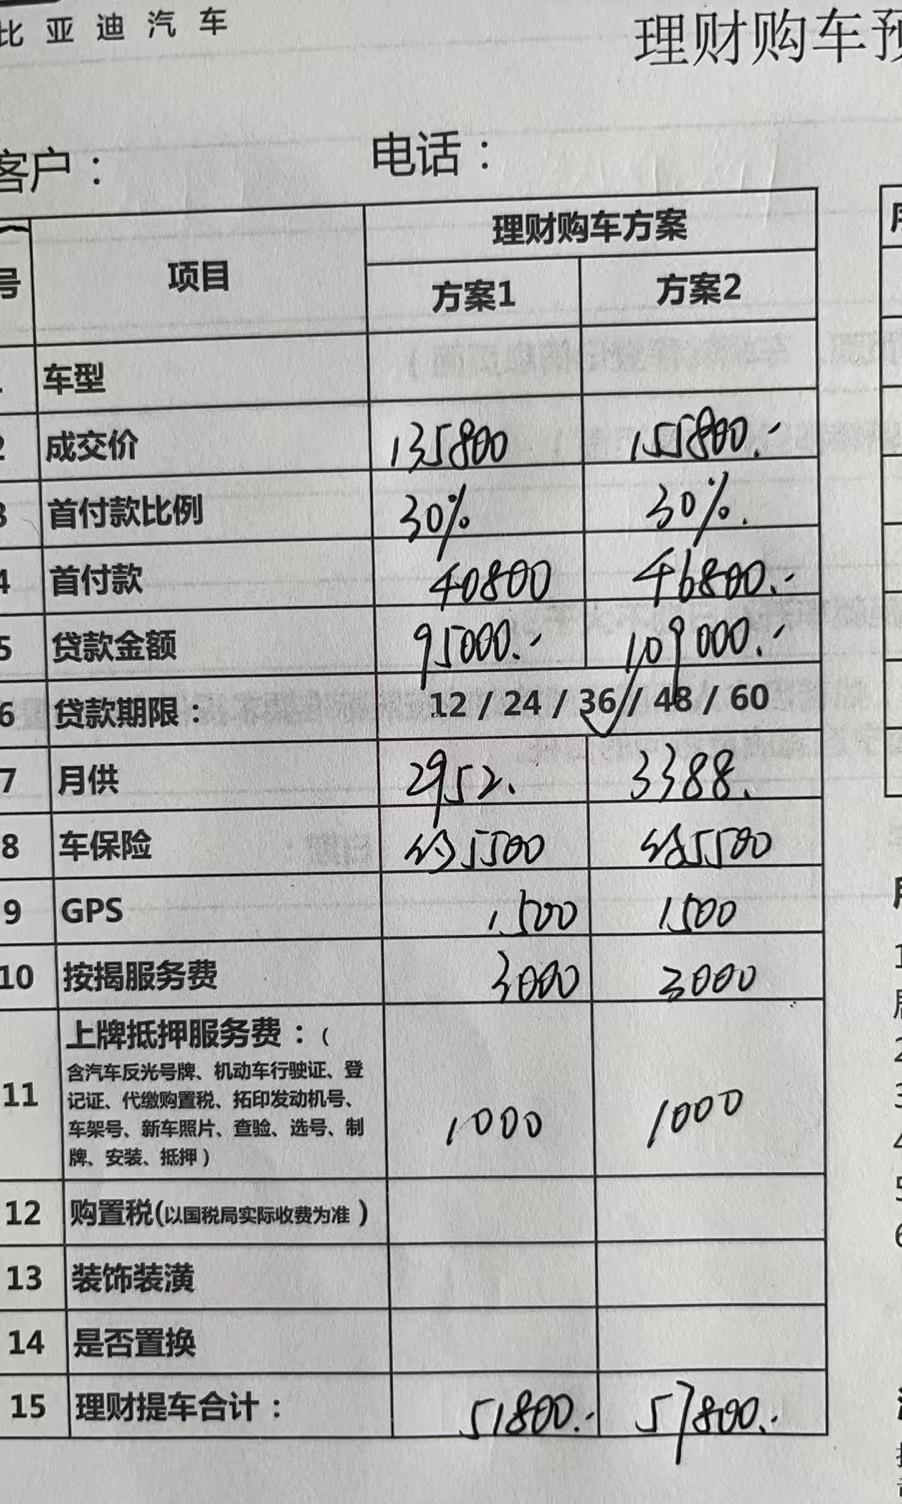 比亚迪汽车
理财购车预
客户：
电话：
号 项目 理财购车方案
方案1 方案2
车型
2 成交价 135800 155800.-
3 首付款比例 30% 30%.
4 首付款 40800 46800.-
5 贷款金额 95000.- 109000.-
6 贷款期限： 12 / 24 / 36 / 48 / 60
7 月供 2952. 3388.
8 车保险 约5500 约5500
9 GPS 1500 1500
10 按揭服务费 3000 3000
11 上牌抵押服务费：（
含汽车反光号牌、机动车行驶证、登
记证、代缴购置税、拓印发动机号、
车架号、新车照片、查验、选号、制
牌、安装、抵押）
1000 1000
12 购置税(以国税局实际收费为准）
13 装饰装潢
14 是否置换
15 理财提车合计： 51800.- 57800.-